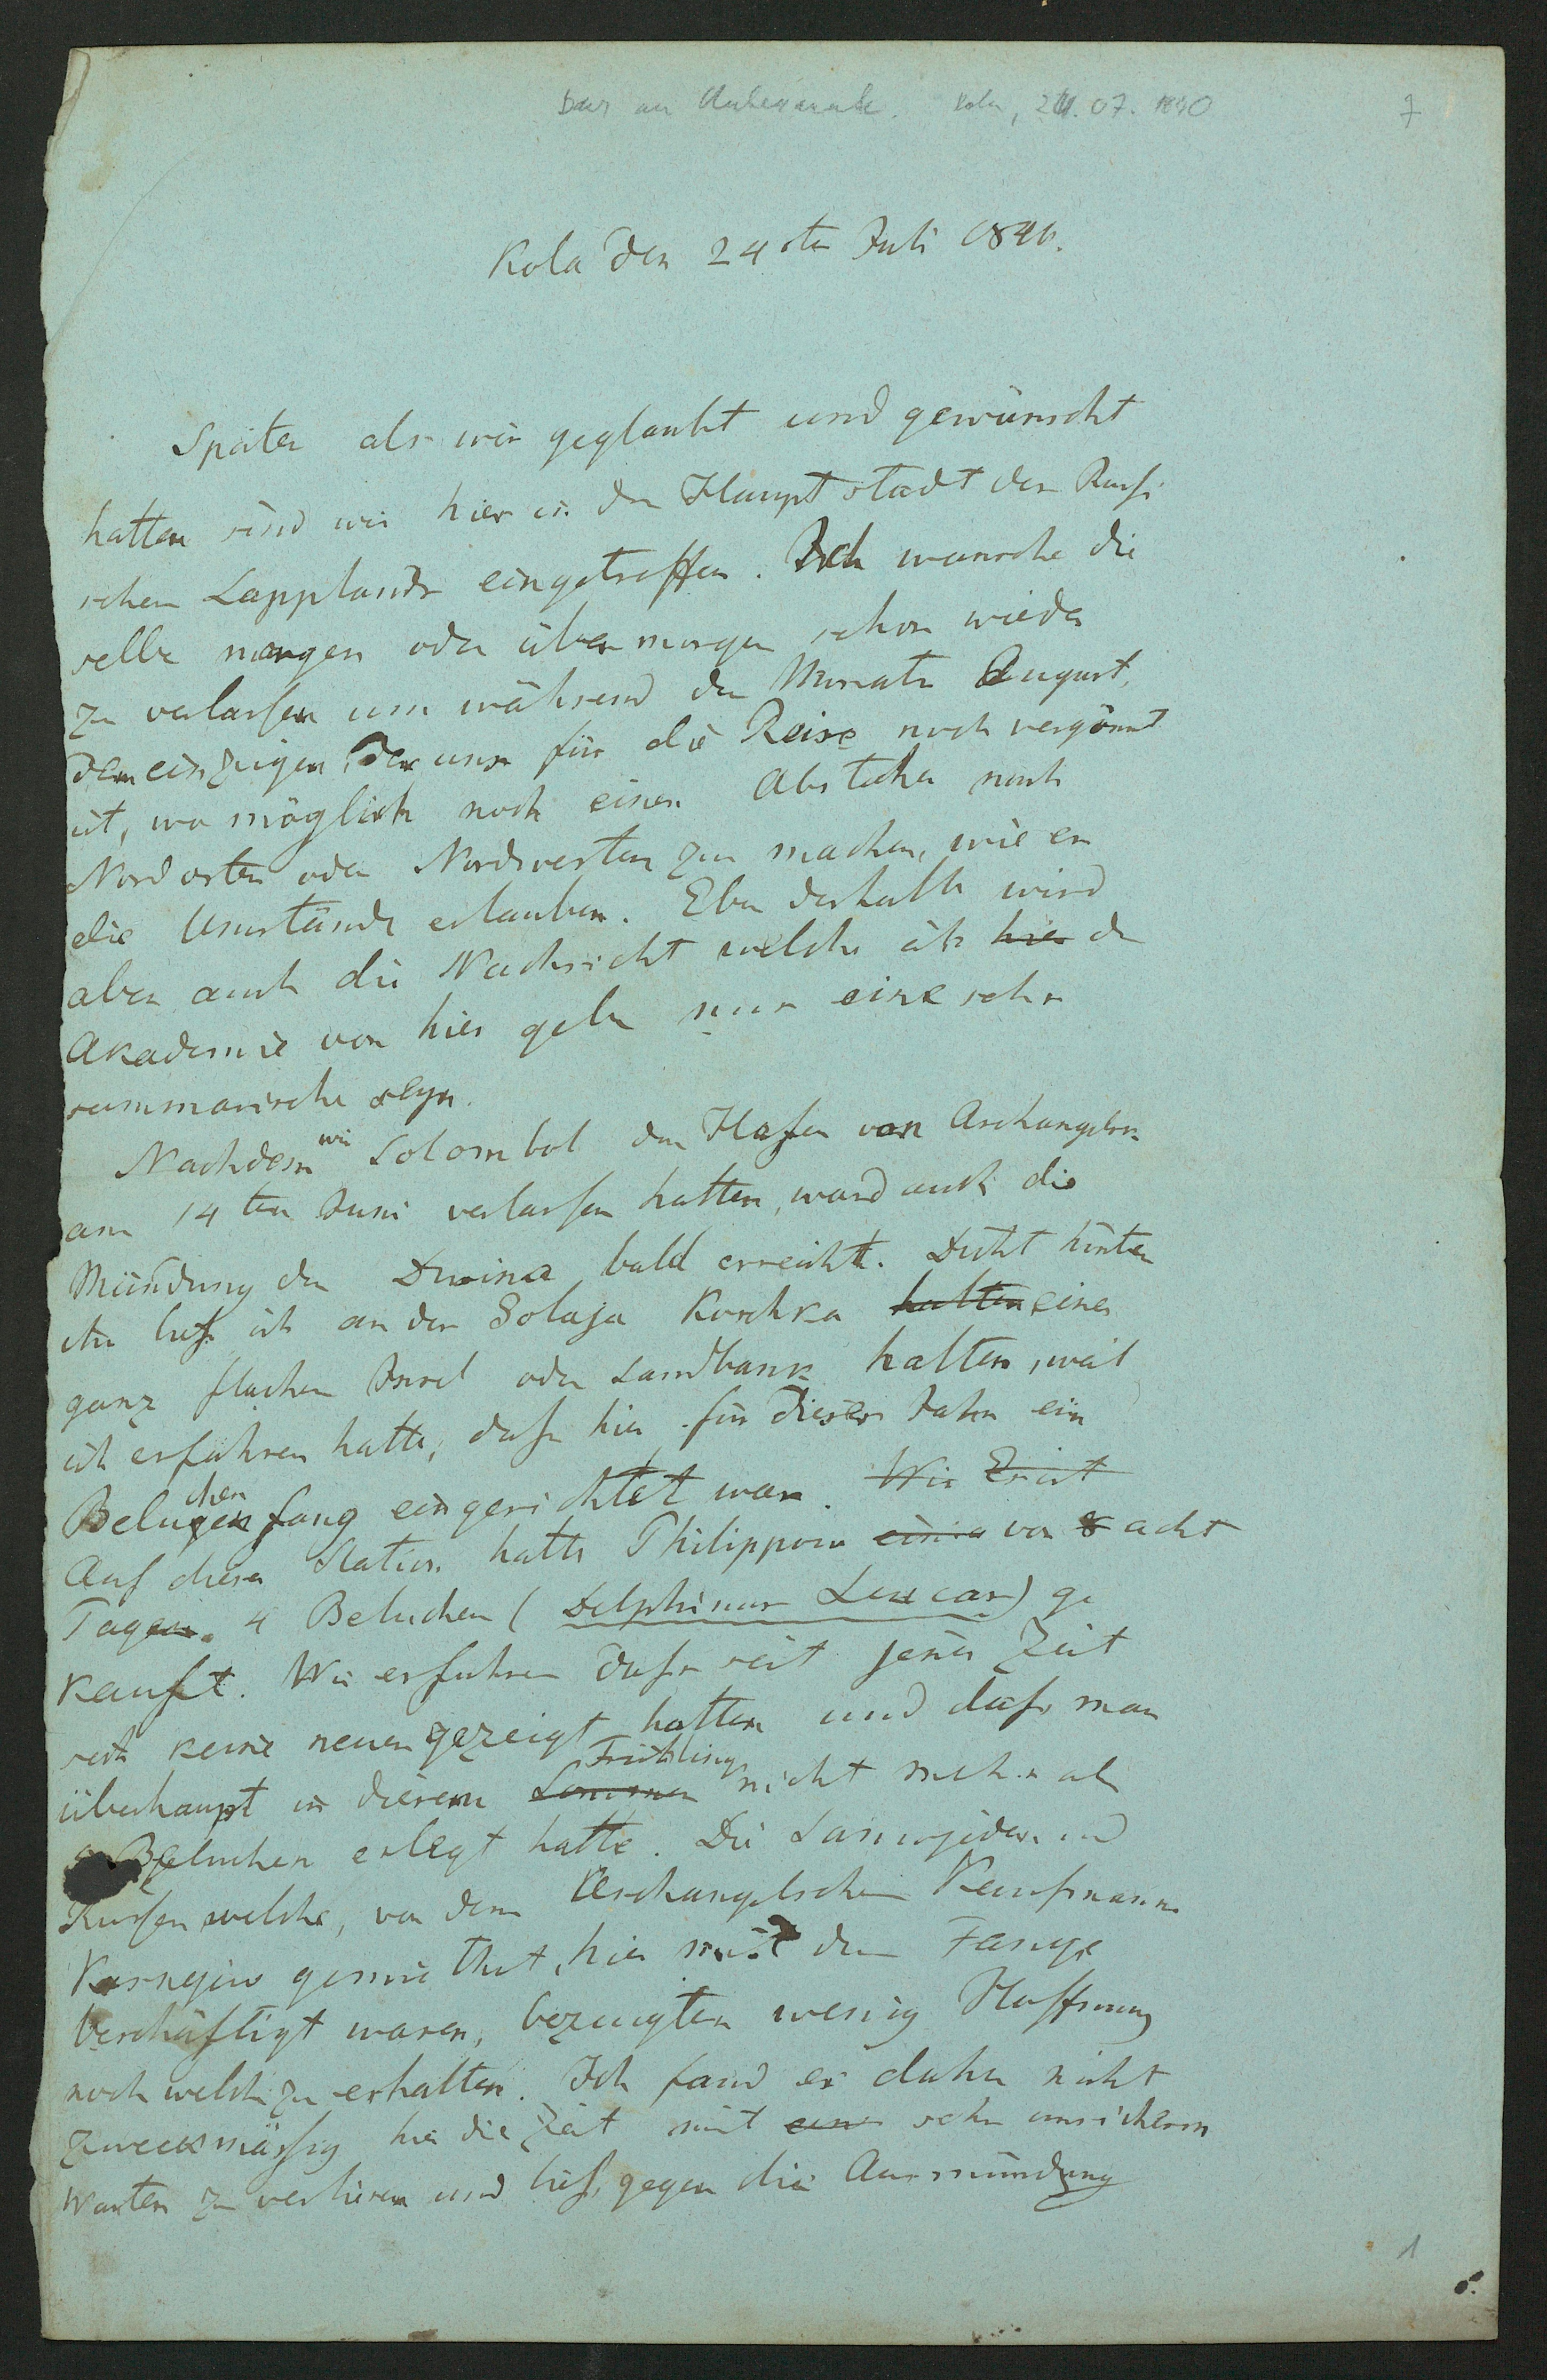 Baer an Unbekannt. Kola, 24.07.1840
7
Kola den 24sten Juli 1840.
Später als wir geglaubt und gewünscht
hatten sind wir hier in der Hauptstadt des Russi
schen Lapplands eingetroffen. Ich wünsche die
selbe morgen oder übermorgen schon wieder
zu verlassen um während des Monats August,
dem einzigen, der uns für die Reise noch vergönnt
ist, wo möglich noch einen Abstecher nach
Nordosten oder Nordwesten zu machen, wie es
die Umstände erlauben. Eben deshalb wird
aber auch die Nachricht welche ich hier der
Akademie von hier gebe nur eine sehr
summarische seyn.
Nachdem wir Solombol den Hafen von Archangelsk
am 14ten Juni verlassen hatten, ward auch die
Mündung der Dwina bald erreicht. Dicht hinter
ihr ließ ich an der Golaja Koschka halten einer
ganz flachen Insel oder Sandbank halten, weil
ich erfahren hatte, daß hier für dieses Jahr ein
Beluchenfang eingerichtet war. Wir Erist
Auf dieser Station hatte Philippow einig vor 8 acht
Tagen 4 Beluchen (Delphinus Leucas) ge
kauft. Wir erfuhren daß seit jener Zeit
sich keine neuen gezeigt hatten und daß man
überhaupt in diesem Sommer Frühling nicht mehr als
Beluchen erlegt hatte. Die Samojeden und
Russen welche, von dem Archangelschen Kaufmann
gemiethet, hier mit dem Fange
beschäftigt waren, bezeugten wenig Hoffnung
noch welche zu erhalten. Ich fand es daher nicht
zweckmäßig hier die Zeit mit einer sehr unsicherm
Warten zu verlieren und ließ gegen die Ausmündung
1